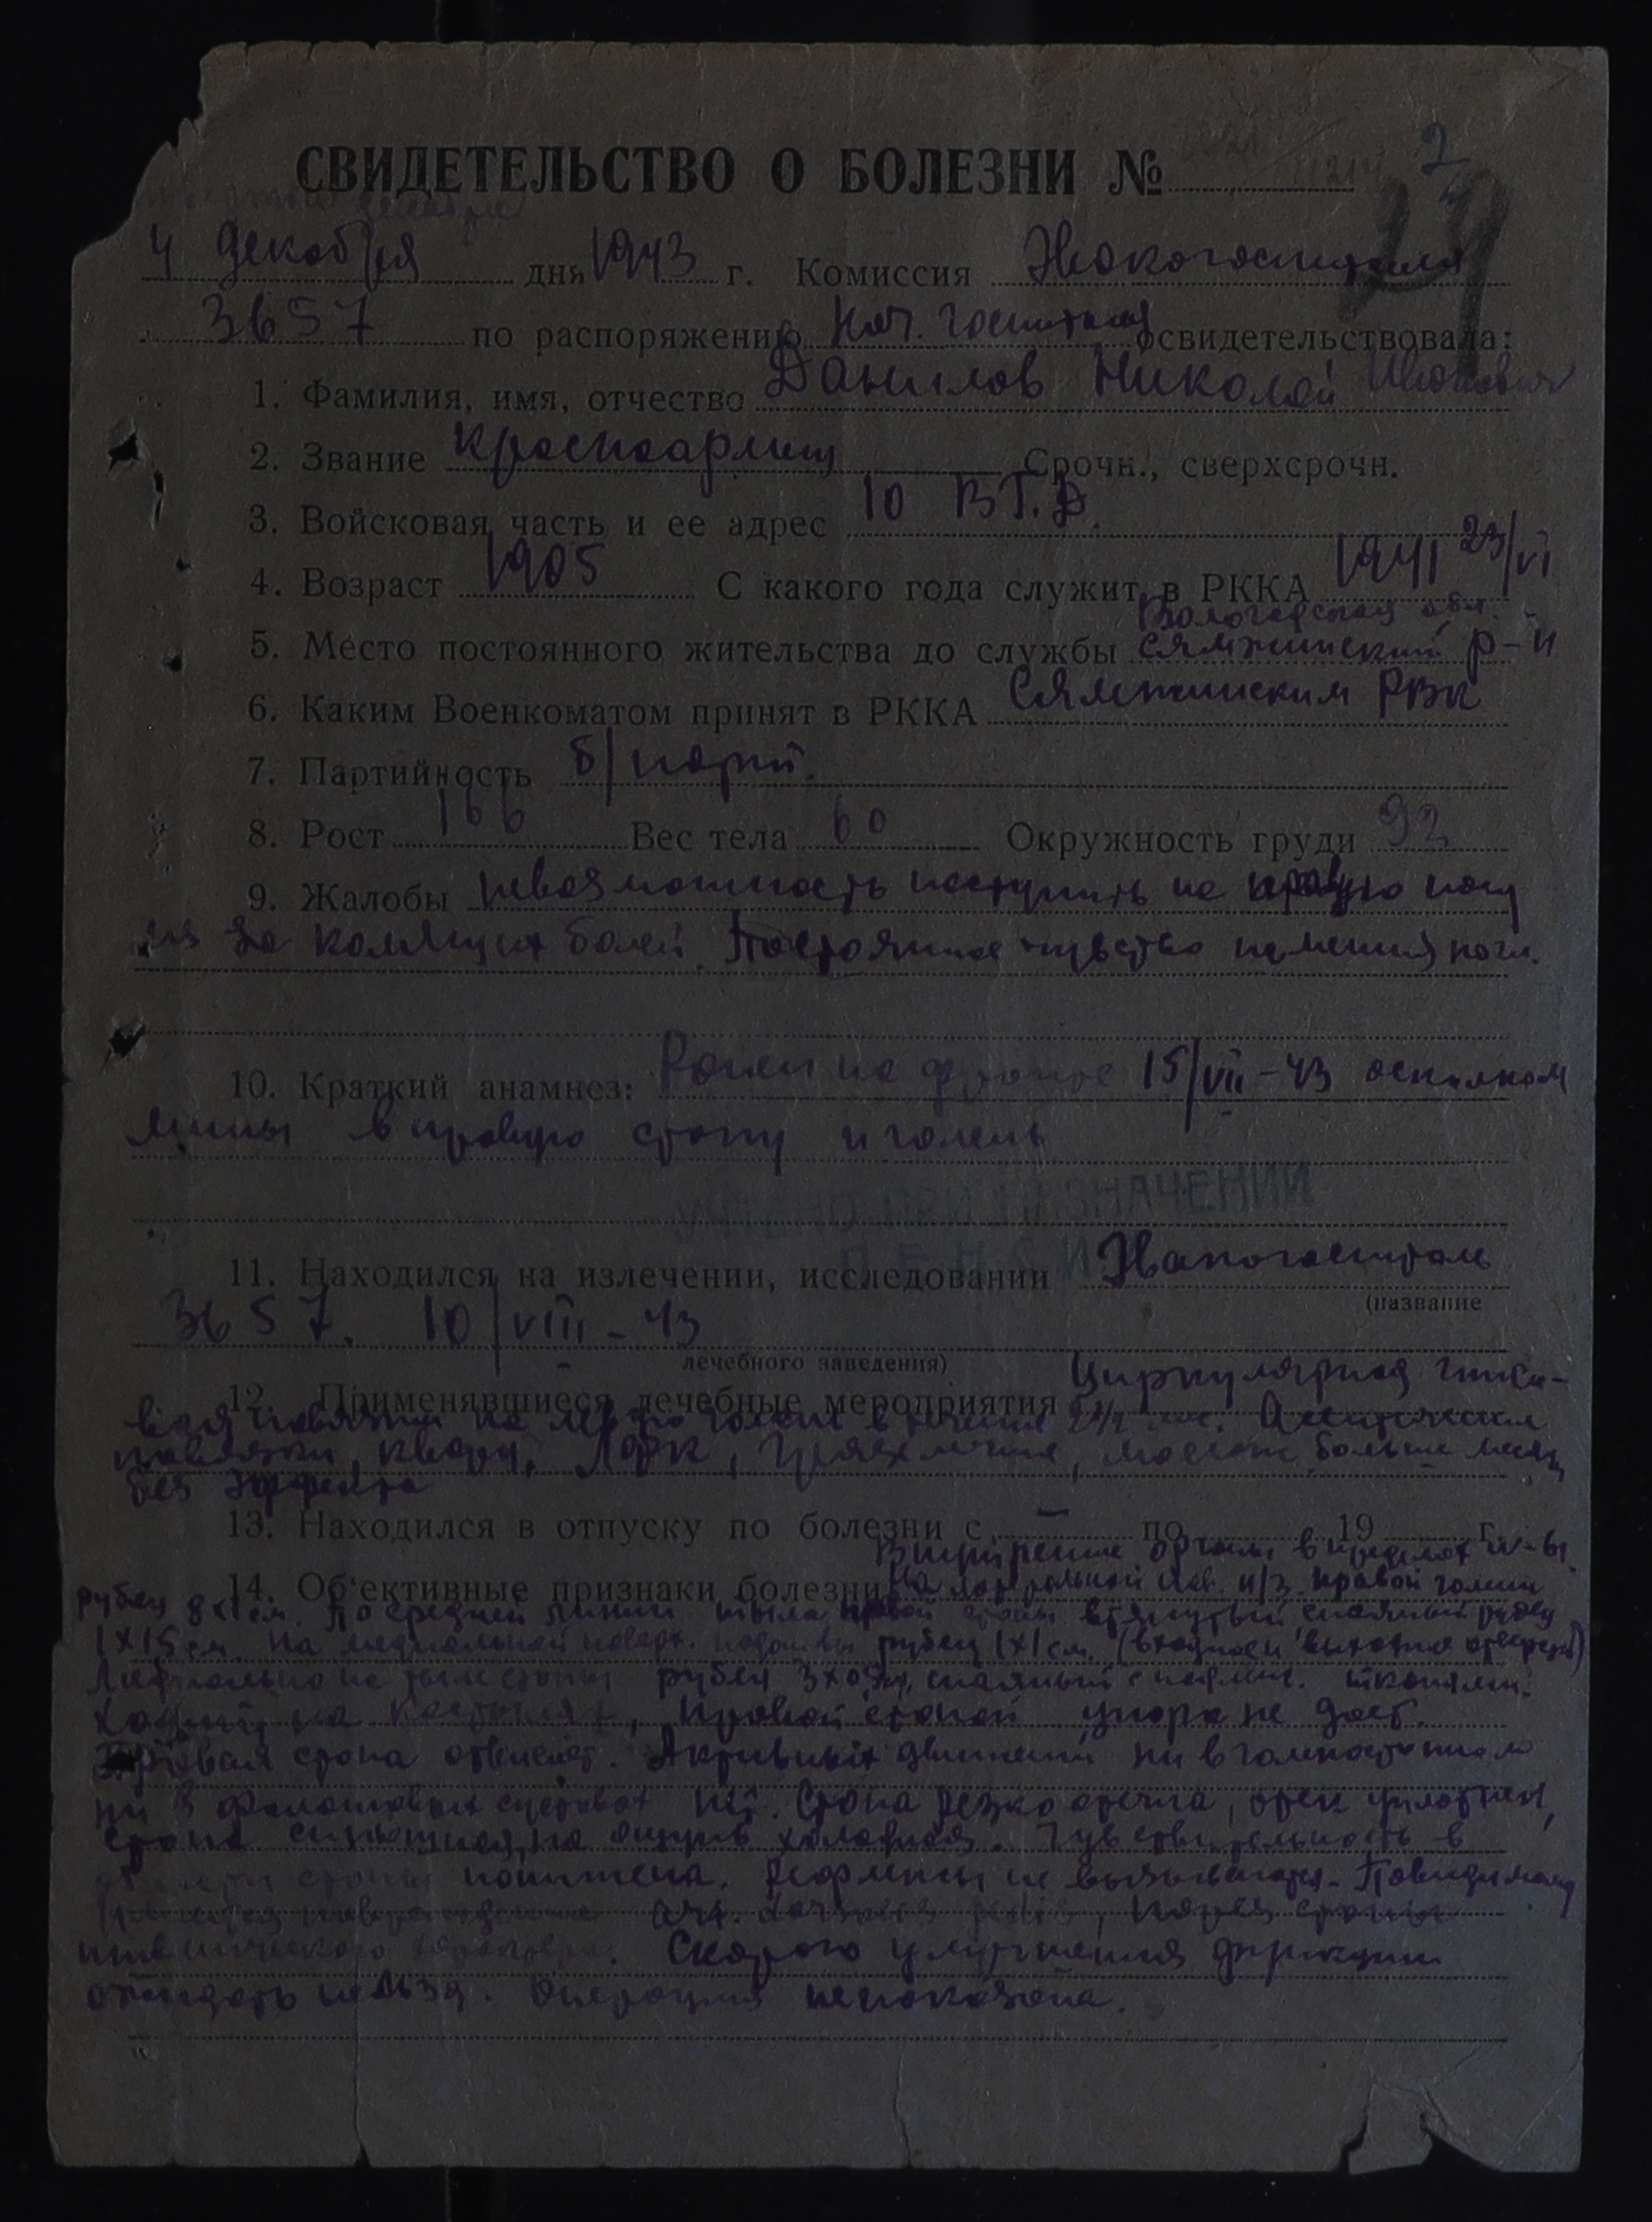 СВИДЕТЕЛЬСТВО О БОЛЕЗНИ №
4 декабря дня 1943 г. Комиссия Эвакогоспиталя
3657 по распоряжению Нач. госпиталя освидетельствовала:
1. Фамилия, имя, отчество Данилов Николай Иванович
2. Звание Красноармеец Срочн., сверхсрочн.
3. Войсковая часть и ее адрес 10 В.Г.Д.
4. Возраст 1905 С какого года служит в РККА 1941 23/VI
Вологодская обл.
5. Место постоянного жительства до службы Сямженский р-н
6. Каким Военкоматом принят в РККА Сямженским РВК
7. Партийность б/парт.
8. Рост 166 Вес тела 60 Окружность груди 92
9. Жалобы невозможность наступить на правую ногу
из за колящих болей. Постоянное чувство онемения ноги.
10. Краткий анамнез: Ранен на фронте 15/VII-43 осколком
мины в правую стопу и голень
УЧТЕНО ПРИ НАЗНАЧЕНИИ
ПЕНСИИ
11. Находился на излечении, исследовании Эвакогоспиталь
(название
3657. 10/VIII-43
лечебного заведения)
12. Применявшиеся лечебные мероприятия Циркулярная гипсо-
вая повязка на голени в течении Асептические
повязки, кварц, ЛФК, грязелечение, массаж больше месяца
без эффекта
13. Находился в отпуску по болезни с — по 19 г.
Внутренние органы в пределах н-ы.
14. Об'ективные признаки болезни На латеральной пов. н/з правой голени
рубец 8х1 см. По средней линии тыла правой стопы втянутый, спаянный рубец
1х15 см. На медиальной поверх. подошвы рубец 1х1 см. (входное и выходное отверстие)
на тыле стопы рубец 3х0,5 см, спаянный с подлеж. тканями.
Ходит на костылях, правой стопой упора не дает.
Правая стопа отвисает. Активных движений ни в голеностопном
ни в фаланговых суставах нет. Стопа резко отечна, отек плотный,
стопа синюшная, на ощупь холодная. Чувствительность в
области стопы понижена. Рефлексы не вызываются. Повидимому
имеется повреждение art. dorsalis pedis, парез стопы
ишемического характера. Скорого улучшения функции
ожидать нельзя. Операция непоказана.